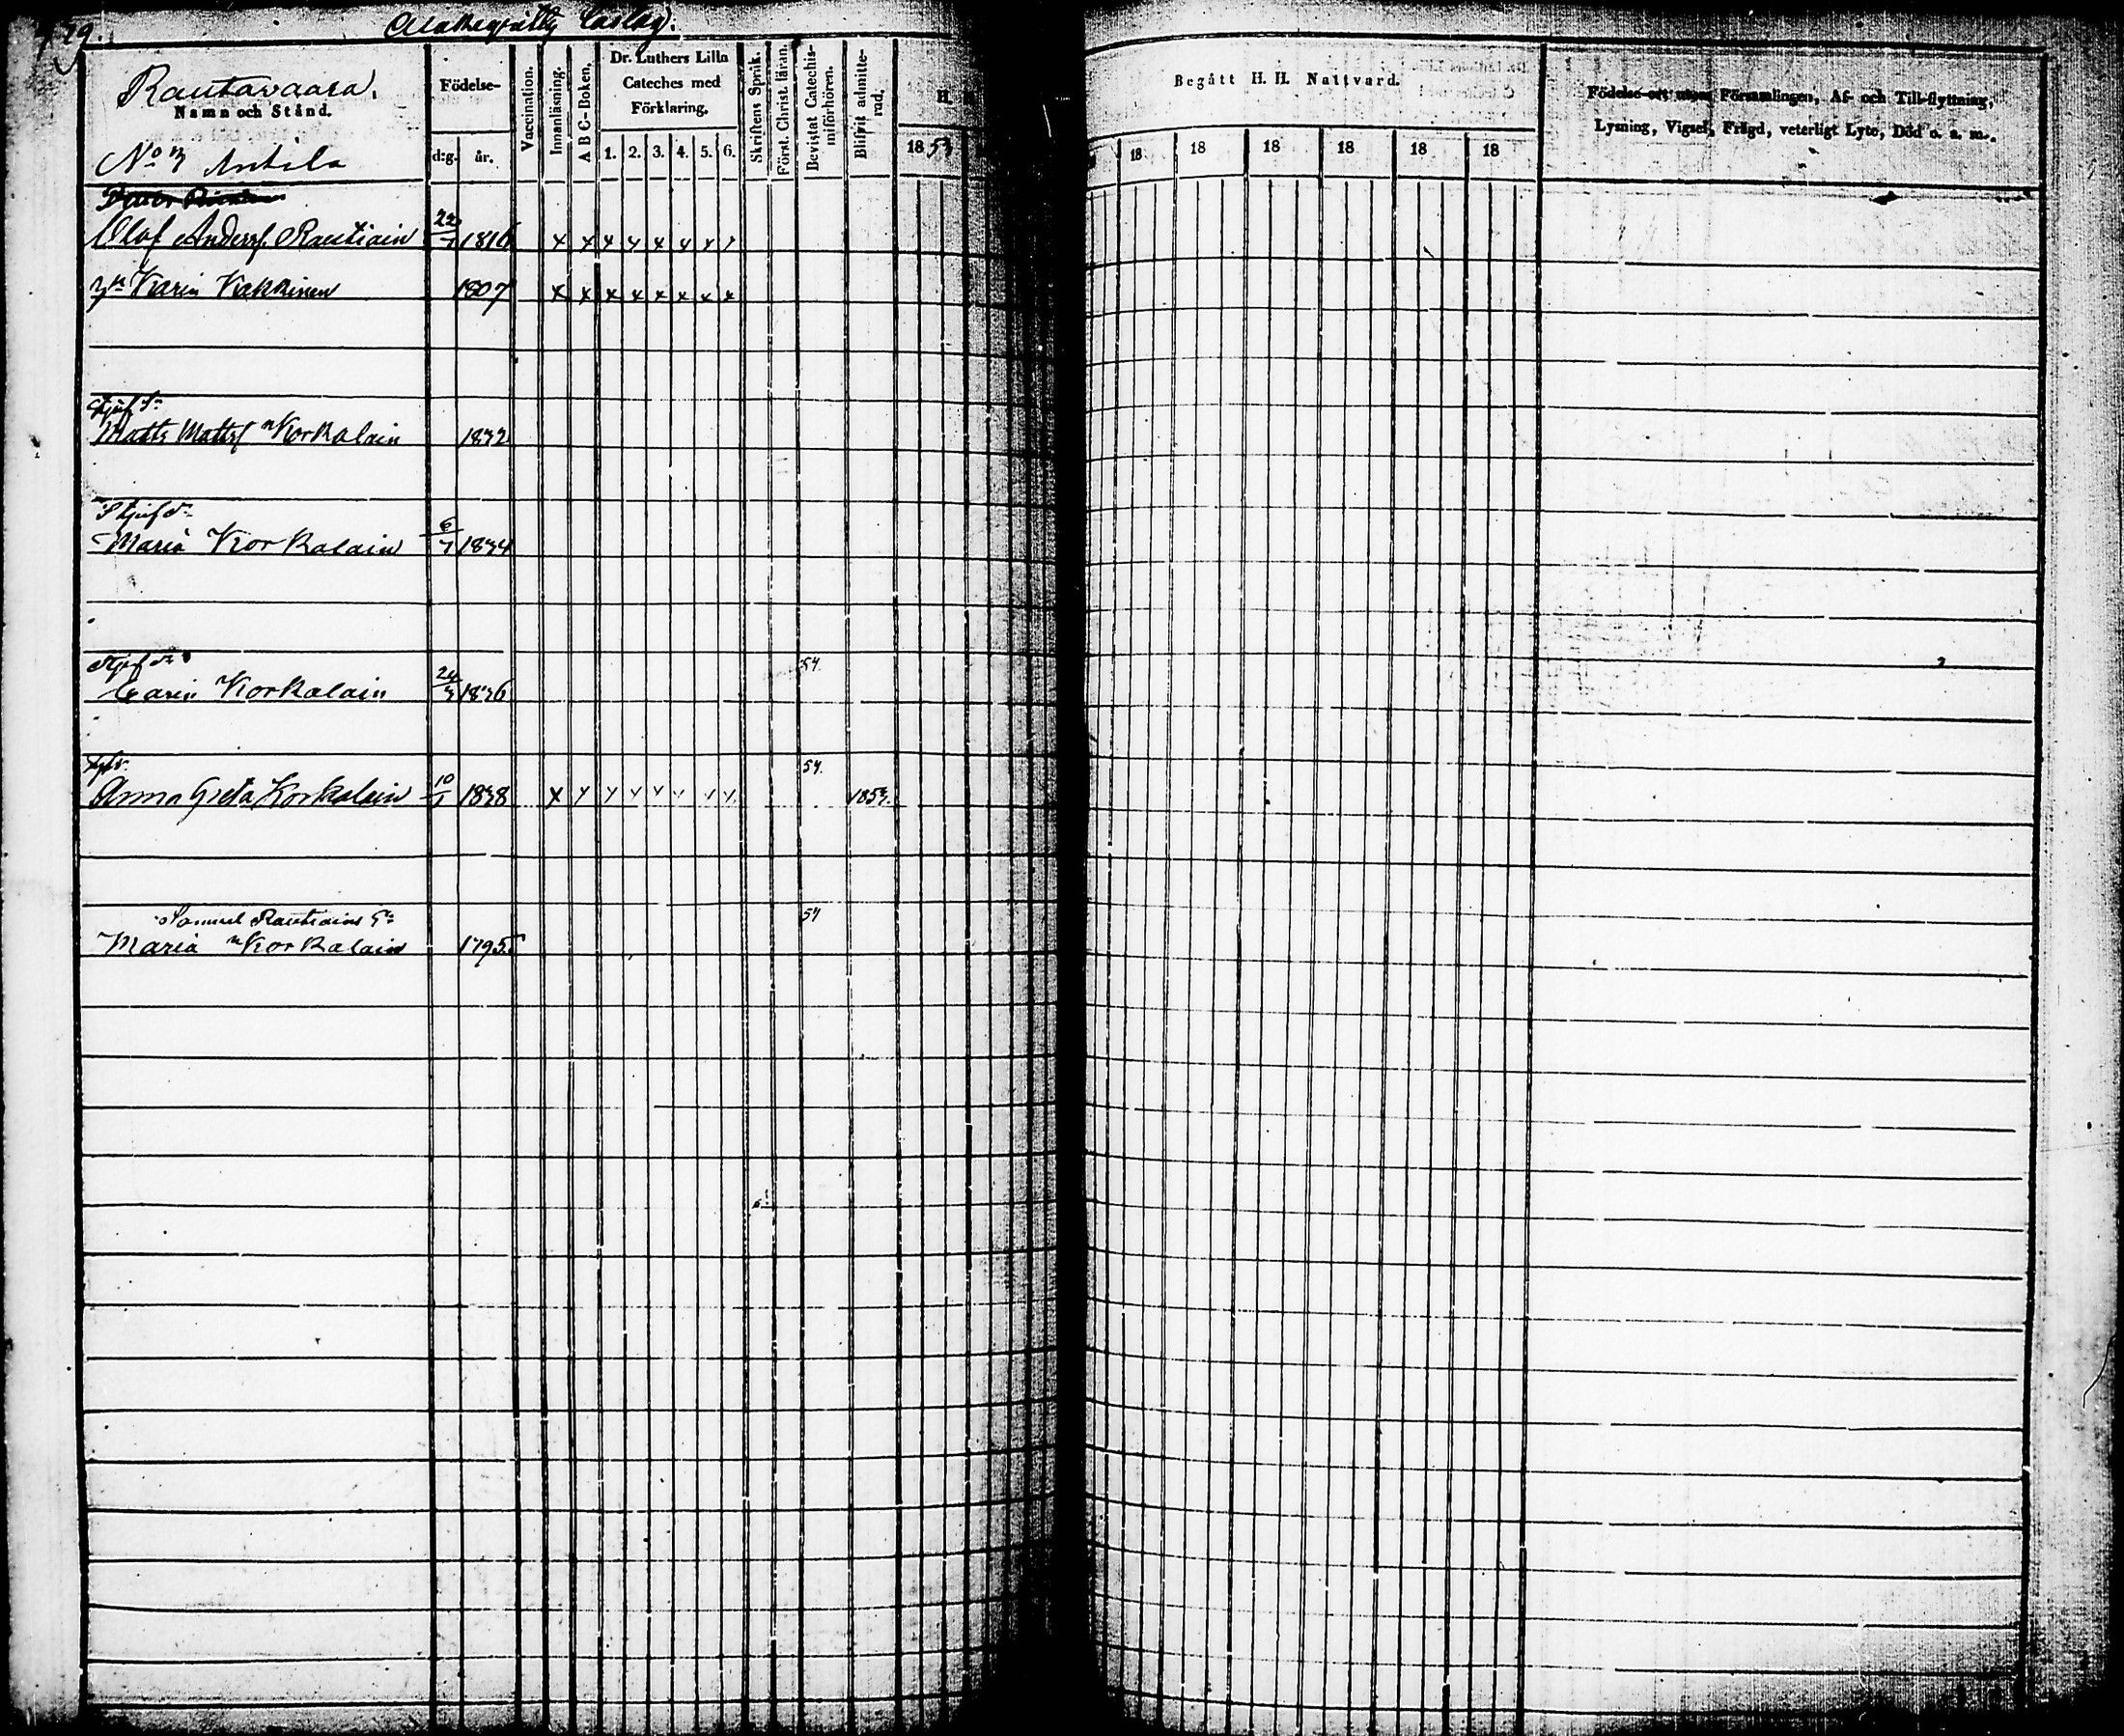 Rautavaara,
Namn och Stånd.
No 3 Antila
Födelse-
d:g. år.
Vaccination.
Innanläsning.
A B C-Boken,
Dr. Luthers Lilla
Cateches med
Förklaring,
1. 2. 3. 4. 5. 6.
Skriftens Språk.
Först. Christ. läran.
Bevistat Catechis-
miförhören.
Blifvit admitte-
rad,
H.
1853
Begått H. H. Nattvard.
18 18 18 18 18 18
Födelse-ort utom Församlingen, Af- och Till-flyttning,
Lysning, Vigsel, Frägd, veterligt Lyte, Död o. s. m.
Olof Anderss. Rautiain 22/7 1816 x x x x x x x x
Karin Kakkinen 1807 x x x x x x x x
Matts Mattss Korkalain 1832
Maria Korkalain 6/7 1834
54.
Carin Korkalain 24/3 1836
54.
Anna Greta Korkalain 10/1 1838 x x x x x x x x 1853.
Samuel Rautiains 54
Maria Korkalain 1795.